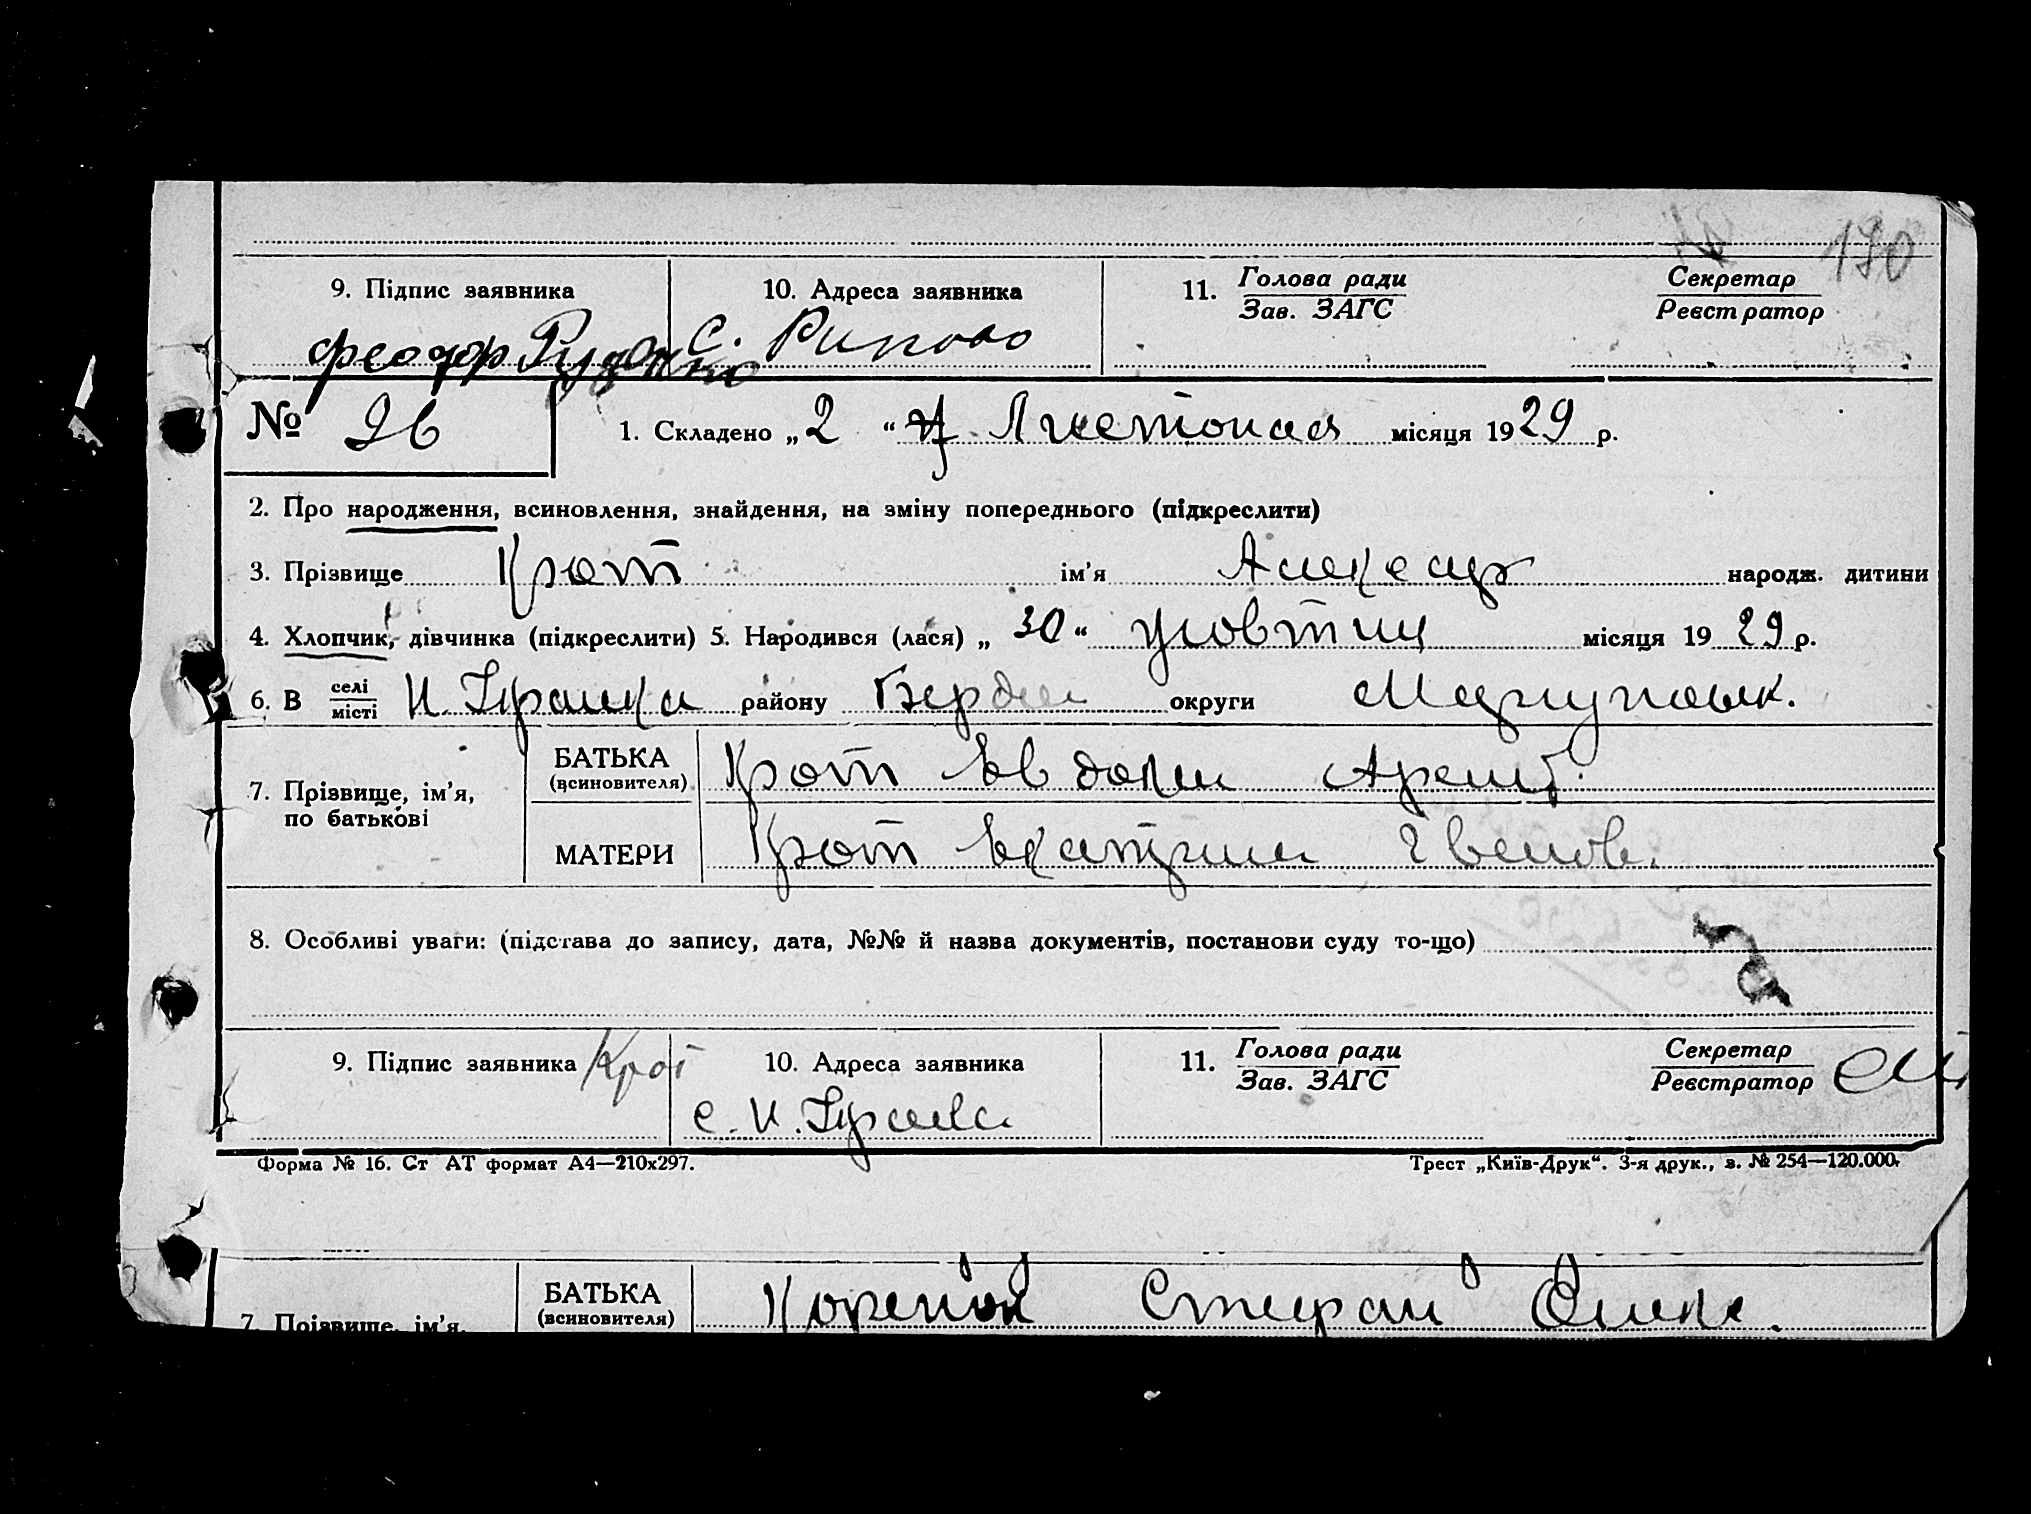 190
9. Підпис заявника 10. Адреса заявника 11. Голова ради Секретар
Зав. ЗАГС Реєстратор
Феодор Руденко С.
№ 26 1. Складено „2“ Листопада місяця 1929 р.
2. Про народження, всиновлення, знайдення, на зміну попереднього (підкреслити)
3. Прізвище Крот ім'я Александр народж. дитини
4. Хлопчик, дівчинка (підкреслити) 5. Народився (лася) „30“ жовтня місяця 1929 р.
6. В селі місті району Бердян округи Мариупольк.
БАТЬКА Крот Евдоким
(всиновителя)
7. Прізвище, ім'я,
по батькові
МАТЕРИ Крот Екатерина
8. Особливі уваги: (підстава до запису, дата, №№ й назва документів, постанови суду то-що)
9. Підпис заявника Крот 10. Адреса заявника 11. Голова ради Секретар
Зав. ЗАГС Реєстратор
Форма № 16. Ст АТ формат А4—210х297. Трест „Київ-Друк“. 3-я друк., з. № 254—120.000.
БАТЬКА Стефан
(всиновителя)
7. Прізвище, ім'я,